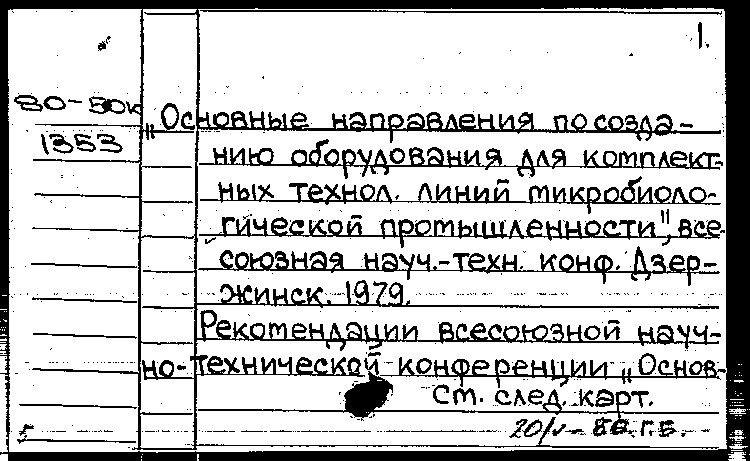 1.
80-50к
1353
„Основные направления по созда-
нию оборудования для комплект-
ных технол. линий микробиоло-
гической промышленности", все-
союзная науч.-техн. конф. Дзер-
жинск. 1979.
Рекомендации всесоюзной науч-
но-технической конференции „Основ-
См. след. карт.
20/V-80. Г.Б.
5